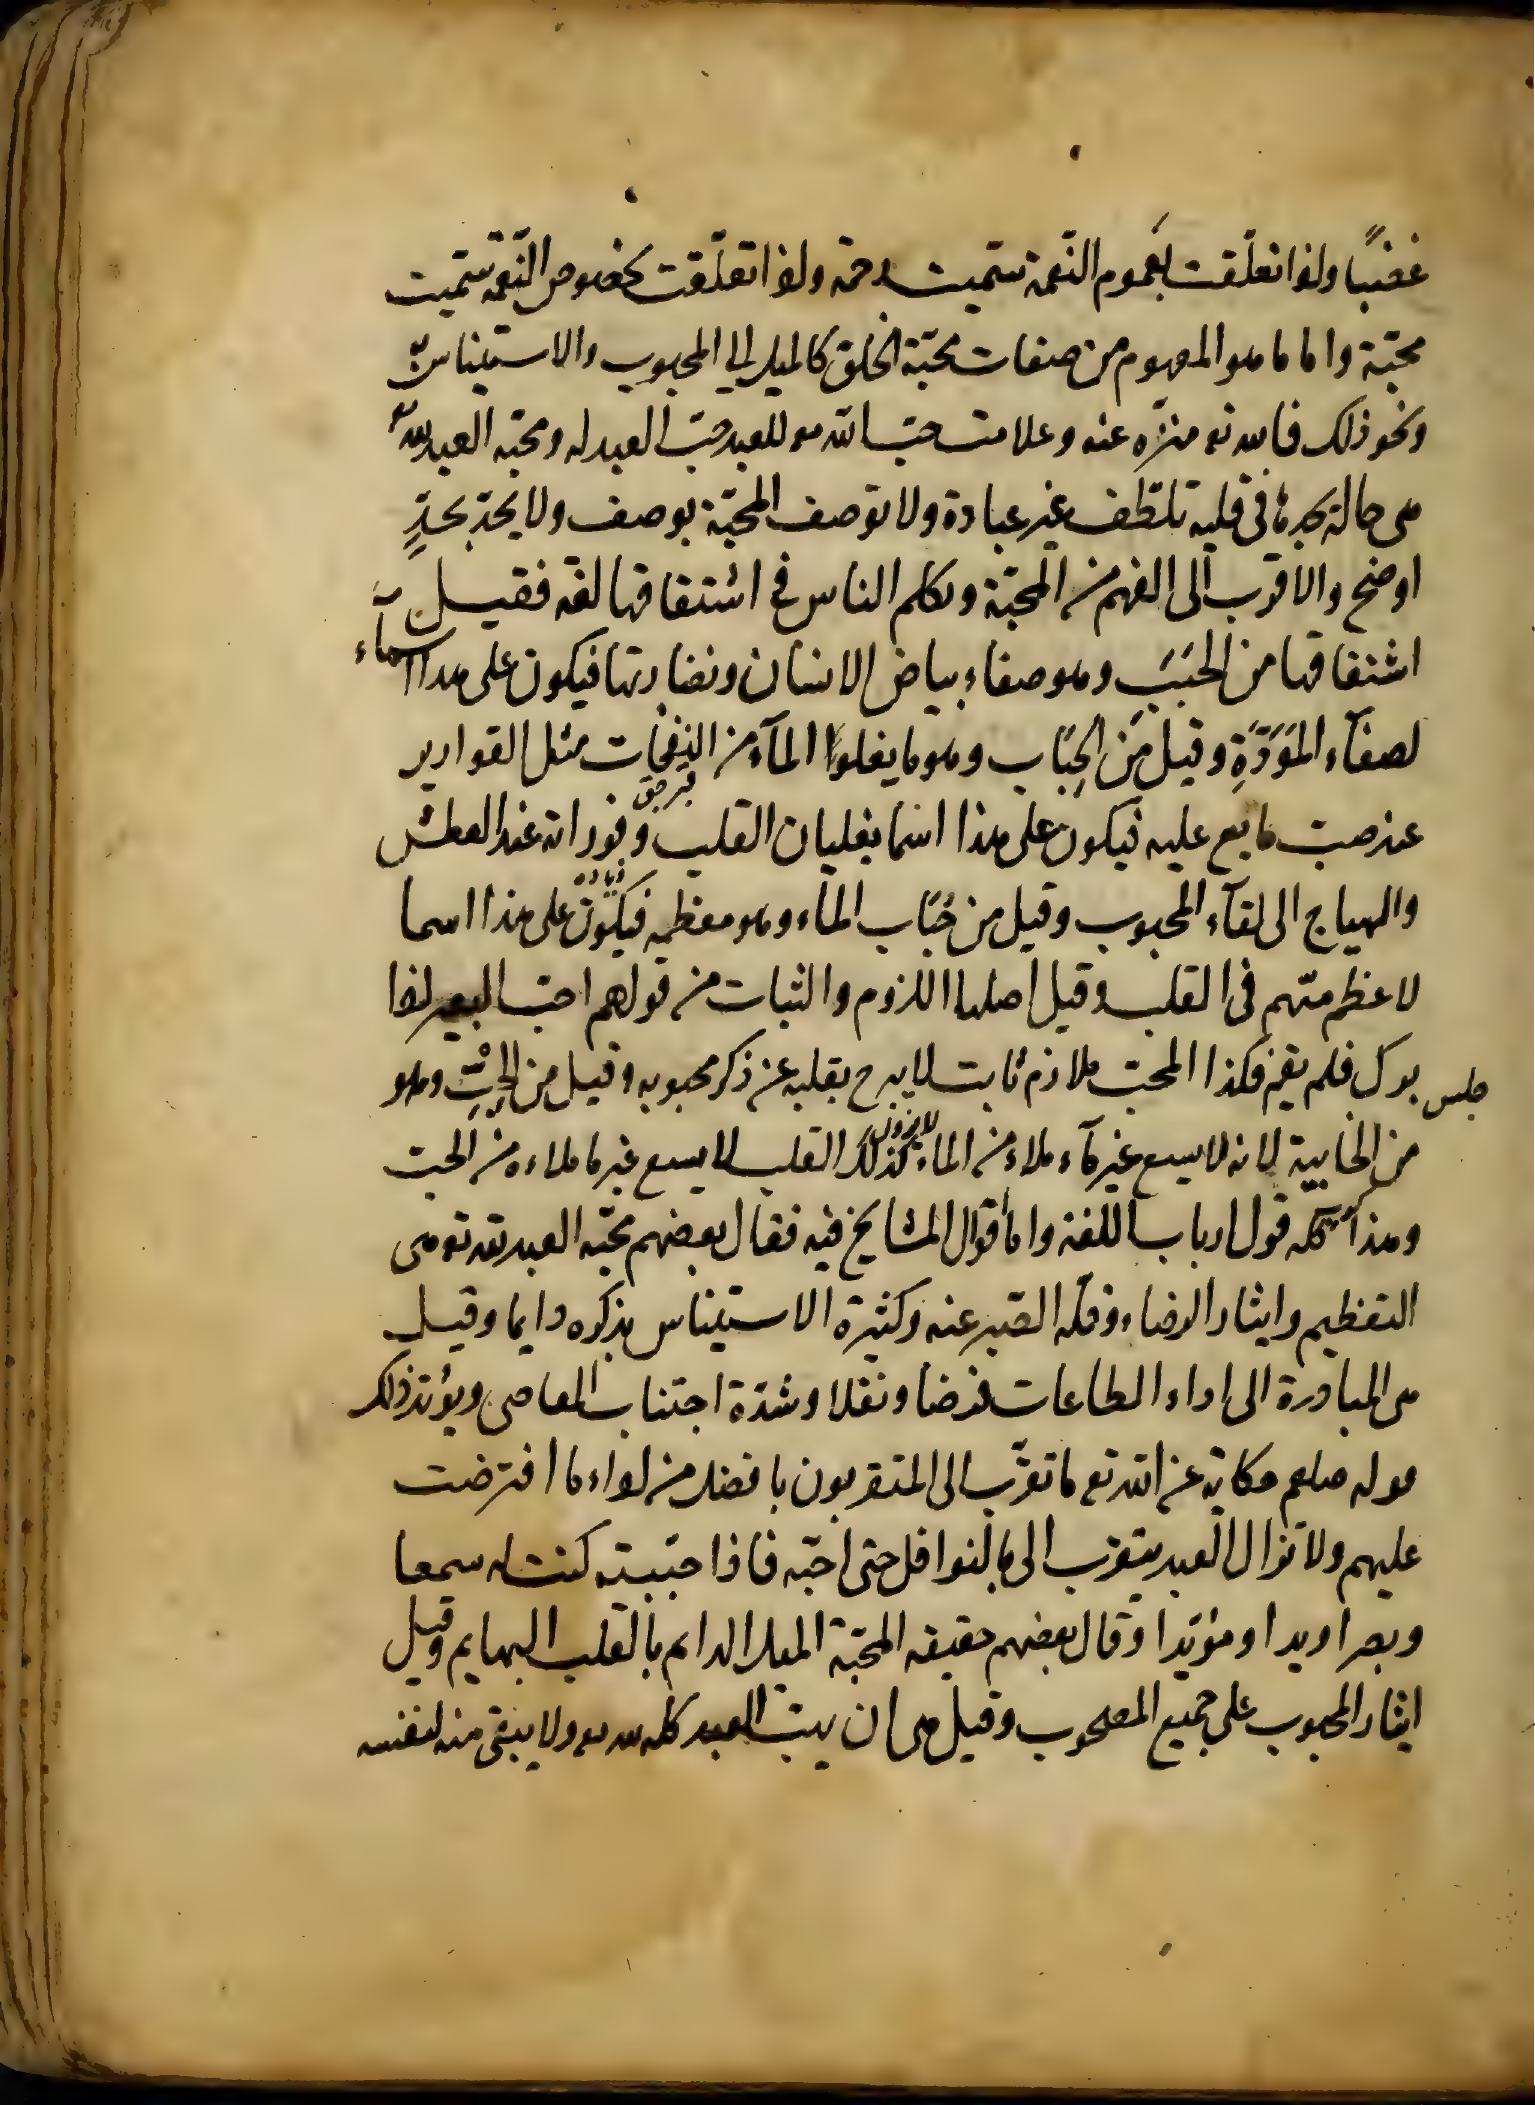 غضبًا واذا تعلّقت بعموم النّعمة سمّيت رحمة واذا تعلّقت بخصوص النّعمة سمّيت
محبّة واما ما هو المفهوم من صفات محبّة الخلق كالميل الى المحبوب والاستيناس
ونحو ذلك فالله تع منزّه عنه وعلامت حبّ الله تع للعبد حبّ العبد له ومحبّه العبد لله
هى حالة يجدها فى قلبه تلطّف عن عبارة ولا توصف المحبّة بوصف ولا يحدّ بحدٍّ
اوضح والاقرب الى الفهم من المحبّة وتكلم الناس فى اشتقاقها لغة فقيل
اشتقاقها من الحَبَبِ وهو صفاء بياض الاسنان ونضارتها فيكون على هذا اسمآء
لصفآء المَوَدَّةِ وقيل مَن الحِبَاب وهو ما يعلوا المآء من النفخات مثل القوارير
عند صبّ ما يع عليه فيكون على هذا اسما بغليان القلب وفورانه عند العطش
والهياج الى لقآء المحبوب وقيل من حَبَاب الماء وهو معظمه فيكون على هذا اسما
لاعظم مهّم فى القلب وقيل اصلها اللزوم والثبات من قولهم احبّ البعير اذا
جلس برك فلم يقم فكذا المحبّ ملازم ثابت لا يبرح بقلبه عن ذكر محبوبه وقيل من الحِبِّ وهو
من الخابية لانه لا يسع غير مآء ملاء من الماء كذلك القلب لا يسع غير ما ملاءه من الحبّ
وهذا كله قول ارباب اللغة واما اقوال المشايخ فيه فقال بعضهم محبّه العبد لله تع هى
التعظيم وايثار الرضاء وقلّه الصّبر عنه وكثرة الاستيناس بذكره دايما وقيل
هى المبادرة الى اداء الطاعات فرضا ونفلا وشدّة اجتناب المعاصى ويؤيّد ذلك
قوله صلعم حكاية عن الله تع ما تقرّب الى المتقربون بافضل من اداء ما افترضت
عليهم ولا تزال العبد يتقرب الى بالنوافل حتى احبّه فاذا حبّبته كنت له سمعا
وبصرا ويدا ومؤيّدا وقال بعضهم حقيقه المحبّة الميل الدايم بالقلب الهايم وقيل
ايثار المحبوب على جميع المصحوب وقيل هى ان يهب العبد كله لله تع ولا يبقى منه لنفسه